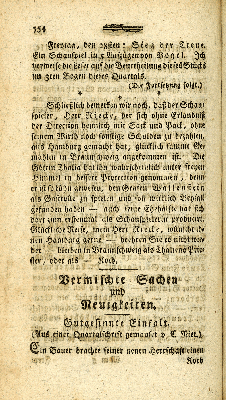 154
Freytag, den 25sten: Sieg der Treue.
Ein Schauspiel in 5 Aufzügen von Vogel. Ich
verweise die Leser auf die Beurtheilung dieses Stücks
im 3ten Bogen dieses Quartals.
(Die Fortsetzung folgt.)
Schließlich bemerken wir noch, daß der Schau-
spieler, Herr Kiecke, der sich ohne Erlaubniß
der Direction heimlich mit Sack und Pack, ohne
seinem Wirth noch sonstige Schulden zu bezahlen,
aus Hamburg gemacht hat, glücklich sammt Ge-
mahlin in Braunschweig angekommen ist. Die
Göttin Thalia hat ihn wahrscheinlich unter freyer
Himmel in bessere Protection genommen, denn
er ist so kühn gewesen, den Grafen Wallenstein
als Gastrolle zu spielen und
auch seine
dort zum erstenmal als Schauspielerin producirt.
Glückliche Reise, mein Herr Kiecke, wünscht de-
nen Hamburg gerne — beehren Sie es nicht wie-
der — bleiben in Braunschweig als Thaliens Prie-
ster, oder als — Koch.
Vermischte Sachen
und
Neuigkeiten.
Gutgesinnte Einfalt.
(Aus einer Quartalschrift gemauset v. C. Niet.)
Ein Bauer brachte seiner neuen Herrschaft einen
Korb